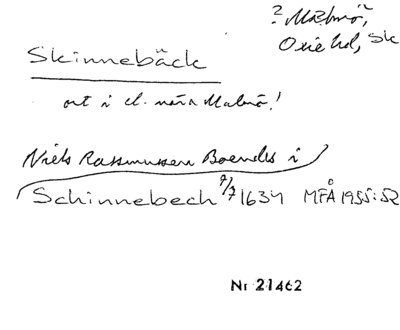 ? Malmö?,
Oxie hd, Sk
Skinnebäck
ort i el. nära Malmö!
Niels Rassmussen Boendes i
Schinnebech 7/7 1634 MFÅ 1955:52
Nr 21462